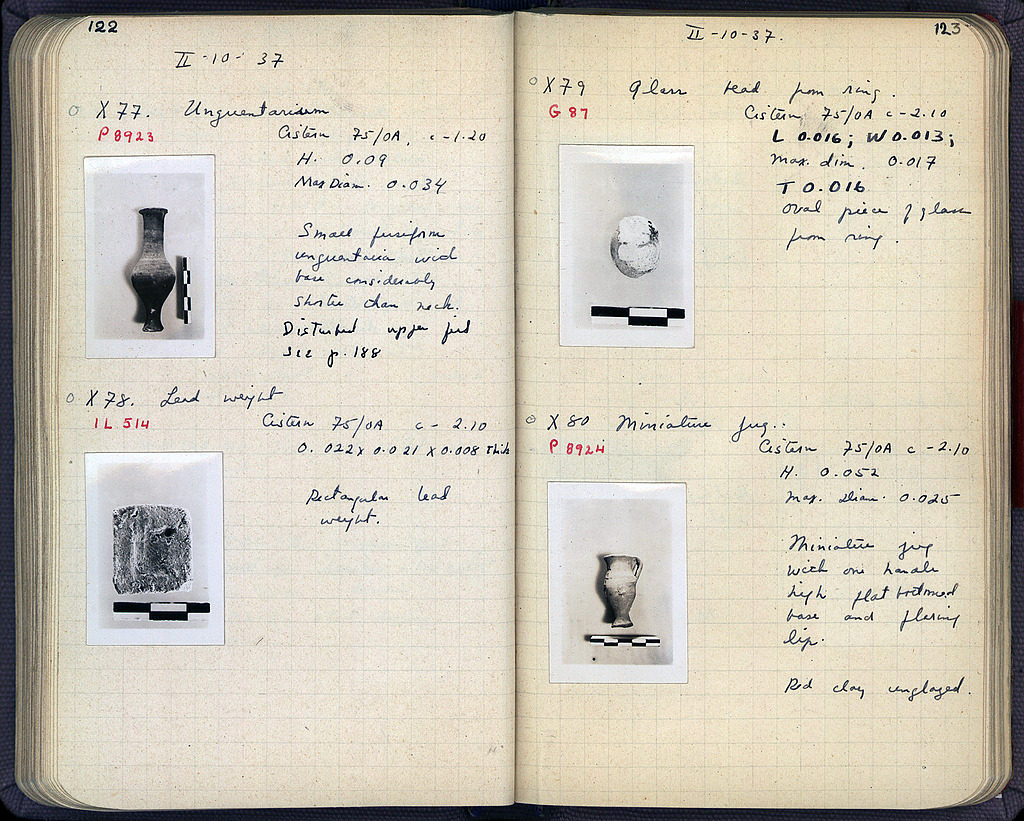 122
II-10-37
X 77. Unguentarium
P 8923
Cistern 75/OA, c -1.20
H. 0.09
Max Diam. 0.034
Small fusiform
unguentaria with
base considerably
shorter than neck.
Disturbed upper fill
see p. 188
X 78. Lead weight
IL 514
Cistern 75/OA c - 2.10
0.022 x 0.021 x 0.008 thick
Rectangular lead
weight.
123
II-10-37.
X 79 Glass bead from ring.
G 87
Cistern 75/OA c -2.10
L 0.016; W 0.013;
max. dim. 0.017
T 0.016
Oval piece of glass
from ring.
X 80 Miniature jug.
P 8924
Cistern 75/OA c -2.10
H. 0.052
Max. Diam. 0.025
Miniature jug
with one handle
high flat bottomed
base and flaring
lip.
Red clay unglazed.